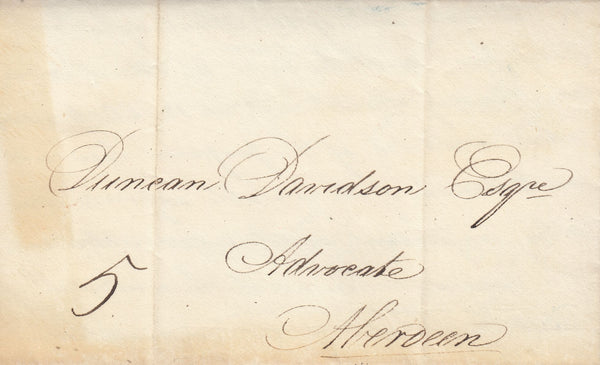 Duncan Davidson Esqre
Advocate
5
Aberdeen